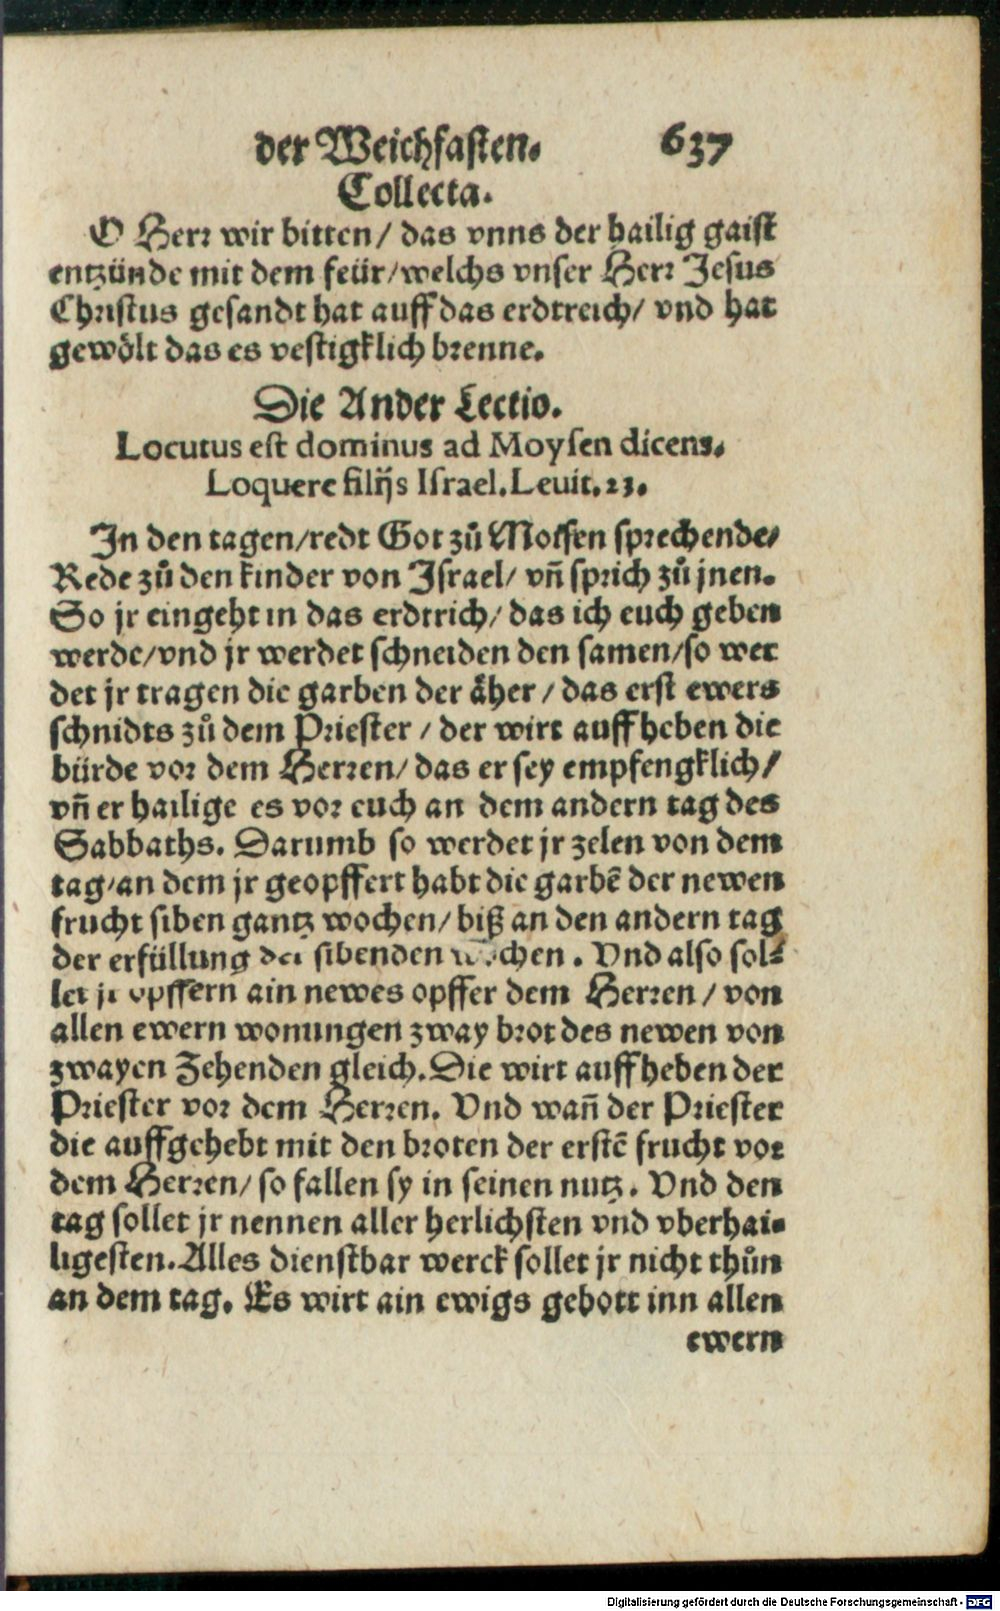 der Weichfasten. 637
Collecta.
O Herr wir bitten/ das vnns der hailig gaist
entzünde mit dem feür/welchs vnser Herr Jesus
Christus gesandt hat auff das erdtreich/ vnd hat
gewölt das es vestigklich brenne.
Die Ander Lectio.
Locutus est dominus ad Moysen dicens.
Loquere filijs Israel. Leuit. 23.
In den tagen/redt Got zů Moisen sprechende/
Rede zů den kinder von Israel/ vñ sprich zů jnen.
So jr eingeht in das erdtrich/ das ich euch geben
werde/vnd jr werdet schneiden den samen/so wer
det jr tragen die garben der äher / das erst ewers
schnidts zů dem Priester / der wirt auffheben die
bürde vor dem Herren/ das er sey empfengklich/
vñ er hailige es vor euch an dem andern tag des
Sabbaths. Darumb so werdet jr zelen von dem
tag/an dem jr geopffert habt die garbē der newen
frucht siben gantz wochen/ biß an den andern tag
der erfüllung der sibenden wochen . Vnd also sol⸗
let jr opffern ain newes opffer dem Herren / von
allen ewern wonungen zway brot des newen von
zwayen Zehenden gleich. Die wirt auffheben der
Priester vor dem Herren. Vnd wañ der Priester
die auffgehebt mit den broten der erstē frucht vor
dem Herren/ so fallen sy in seinen nutz. Vnd den
tag sollet jr nennen aller herlichsten vnd vberhai⸗
ligesten. Alles dienstbar werck sollet jr nicht thůn
an dem tag. Es wirt ain ewigs gebott inn allen
ewern
Digitalisierung gefördert durch die Deutsche Forschungsgemeinschaft - DFG